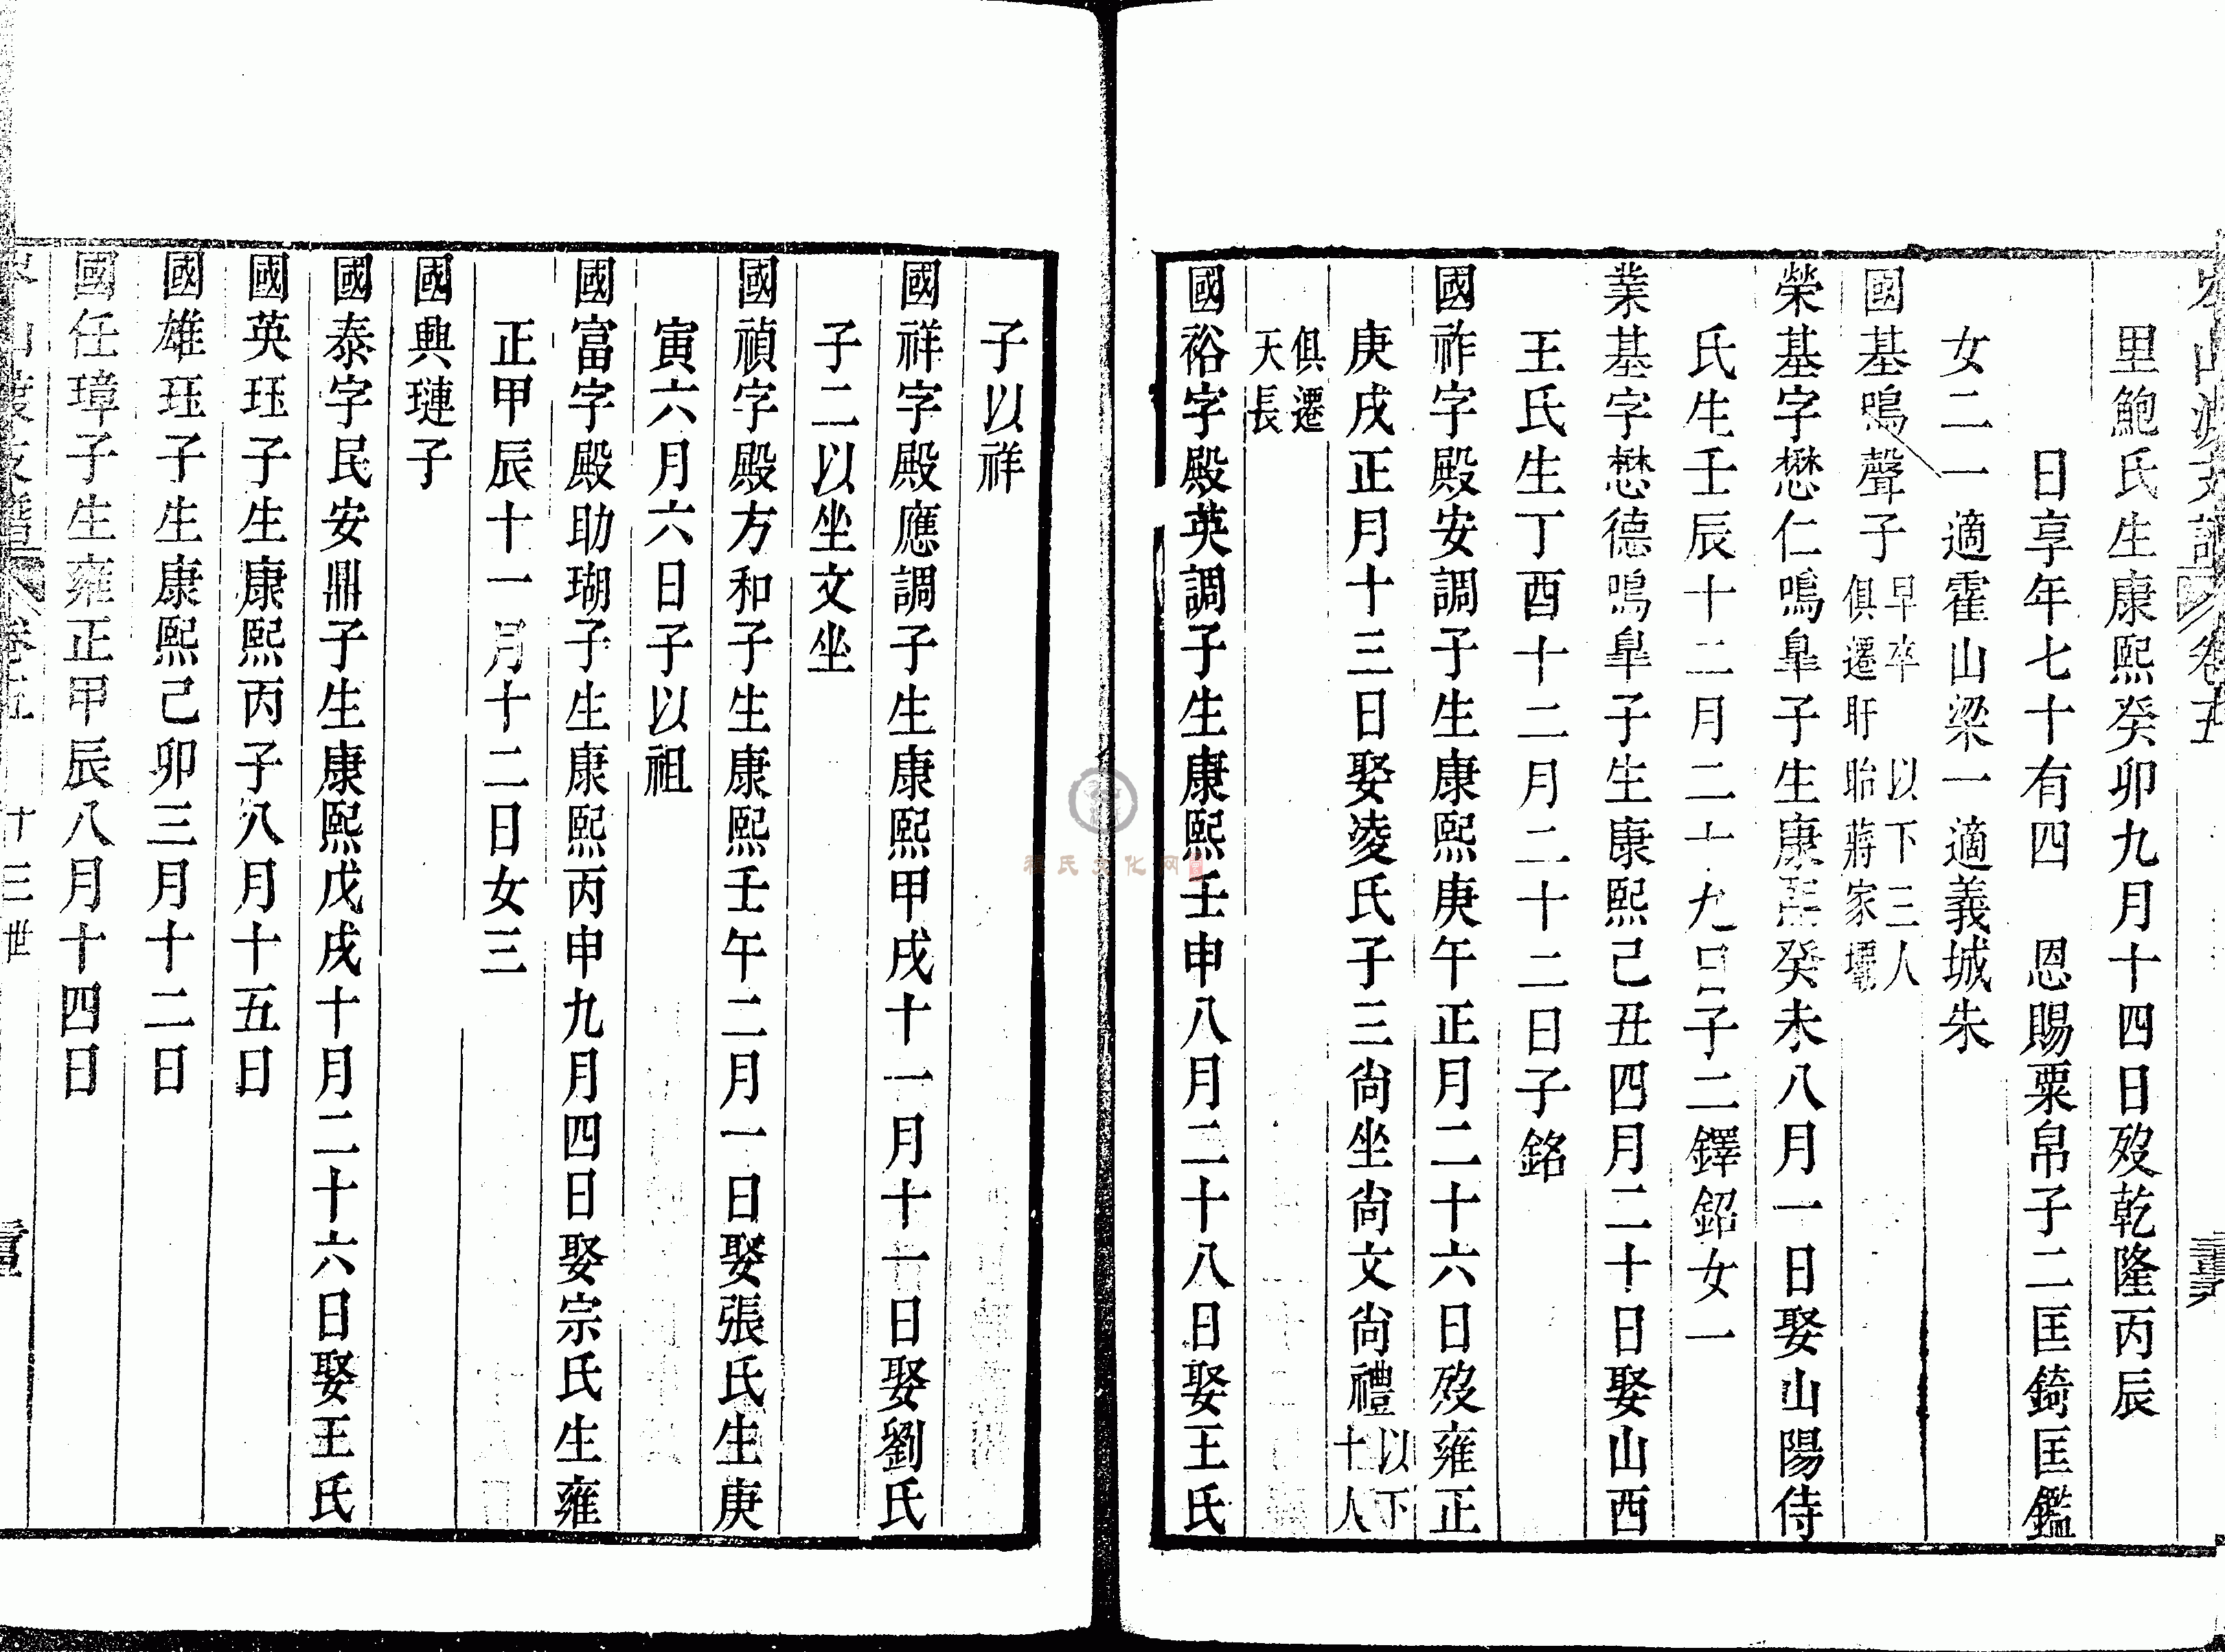 里鮑氏生康熙癸卯九月十四日歿乾隆丙辰
日享年七十有四　恩賜粟帛子二匡錡匡鑑
女二一適霍山梁一適義城朱
國基鳴聲子早卒以下三人俱遷盱眙蔣家壩
榮基字懋仁鳴臯子生康熙癸未八月一日娶山陽侍
氏生壬辰十二月二十九日子二鐸鉊女一
業基字懋德鳴臯子生康熙己丑四月二十日娶山西
王氏生丁酉十二月二十二日子銘
國祚字殿安調子生康熙庚午正月二十六日歿雍正
庚戌正月十三日娶凌氏子三尙坐尙文尙禮以下十人
俱遷天長
國裕字殿英調子生康熙壬申八月二十八日娶王氏
子以祥
國祥字殿應調子生康熙甲戌十一月十一日娶劉氏
子二以坐文坐
國禎字殿方和子生康熙壬午二月一日娶張氏生庚
寅六月六日子以祖
國富字殿助瑚子生康熙丙申九月四日娶宗氏生雍
正甲辰十一月十二日女三
國興璉子
國泰字民安鼎子生康熙戊戌十月二十六日娶王氏
國英珏子生康熙丙子八月十五日
國雄珏子生康熙己卯三月十二日
國任璋子生雍正甲辰八月十四日
卷五　十三世
程氏文化网